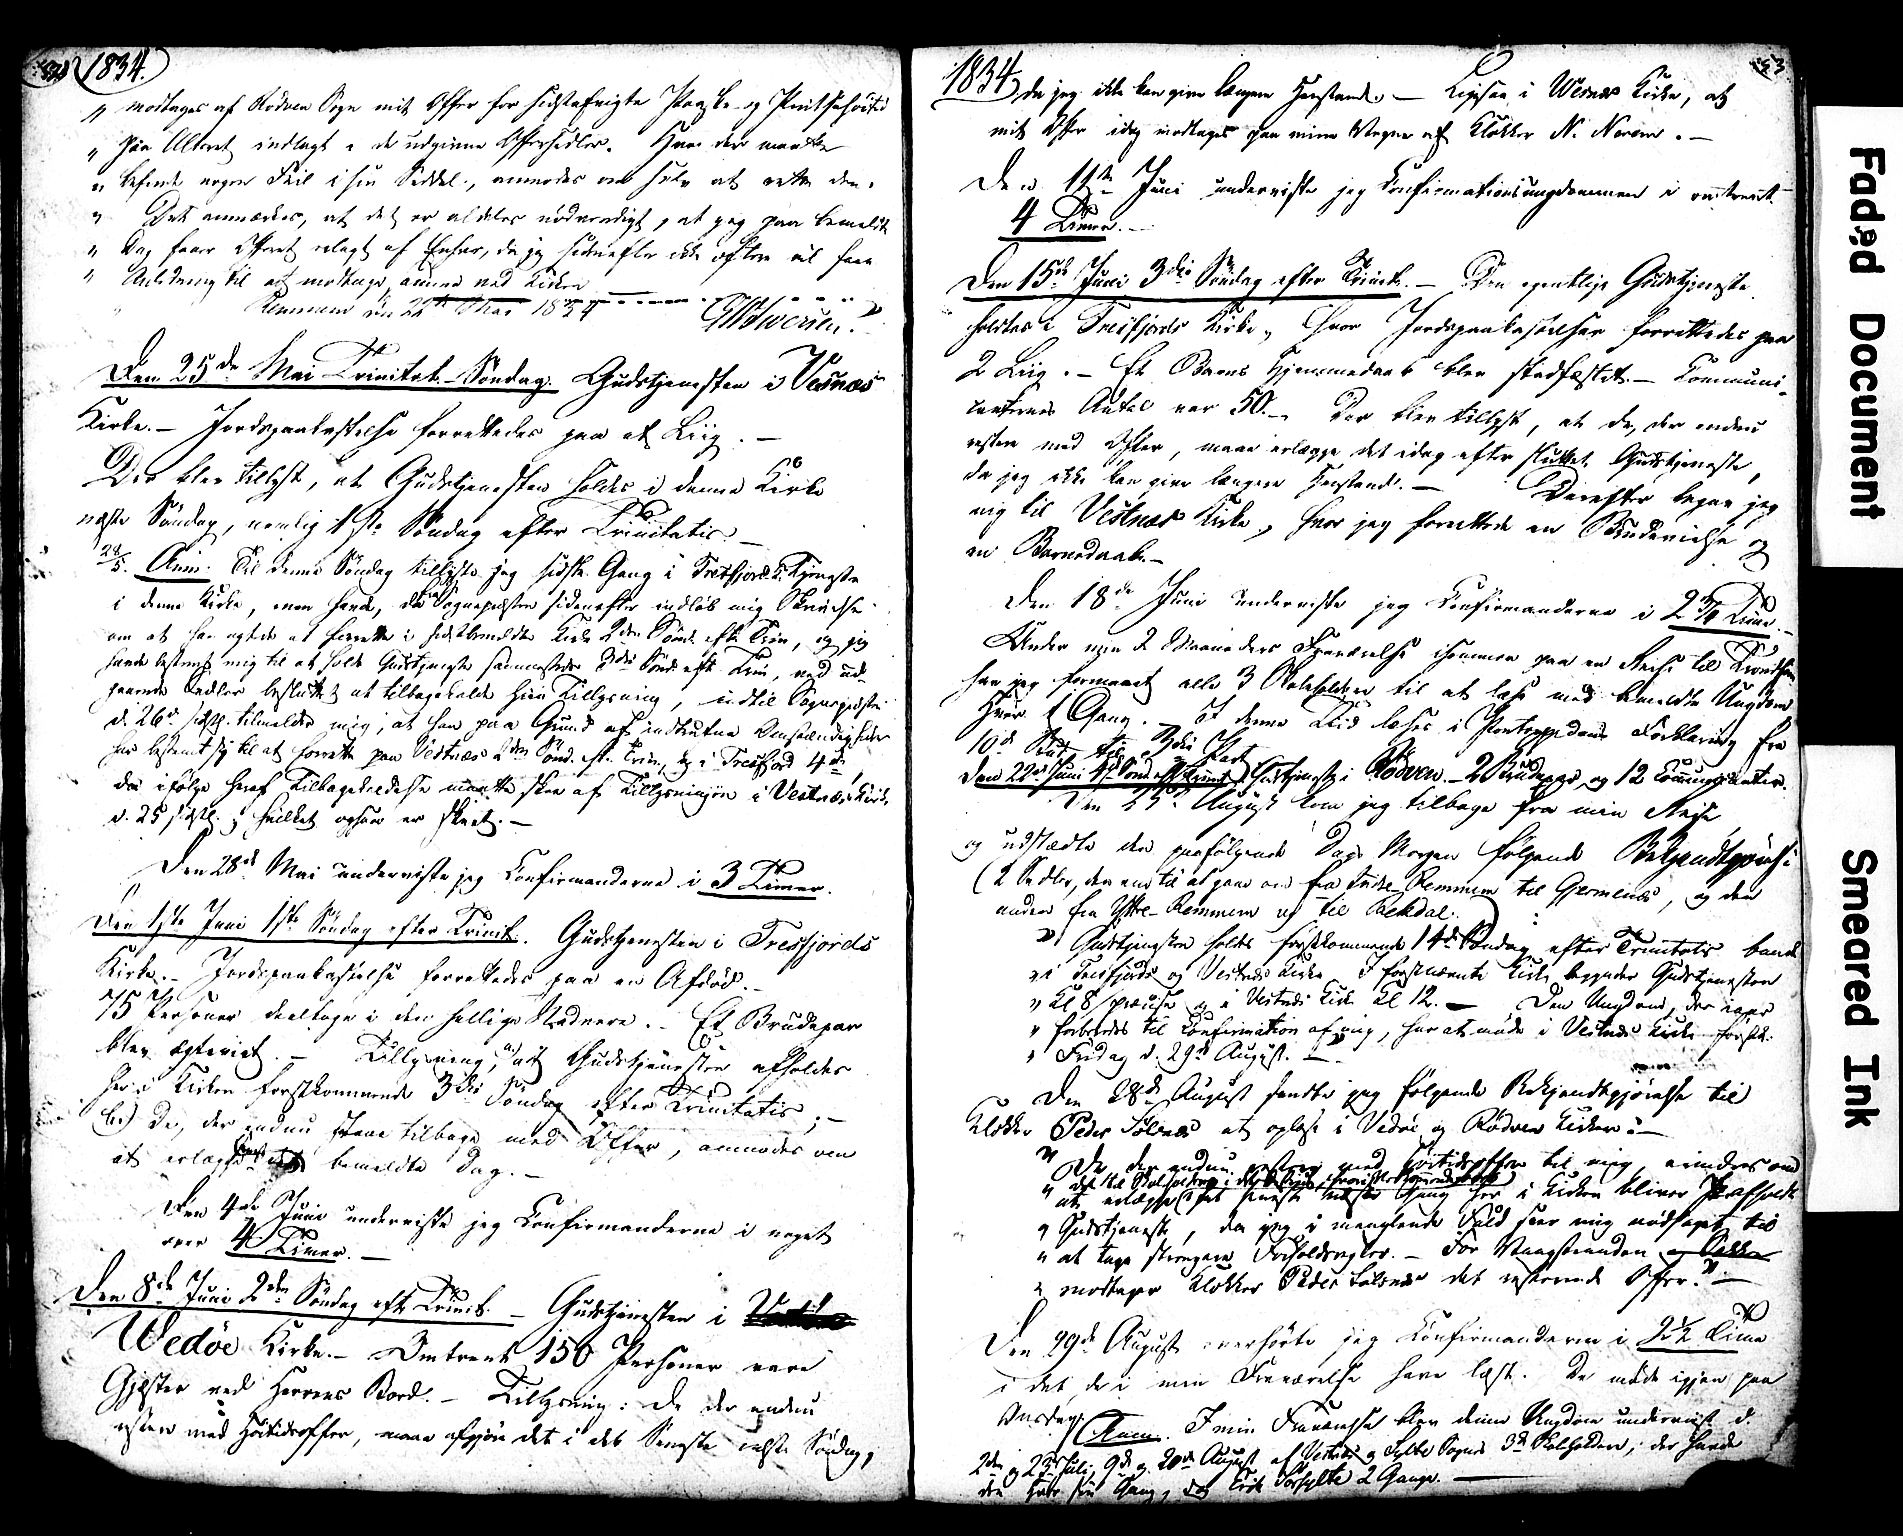 1834.
" modtages af Rödven Sogn mit Offer for sidstafvigte Paaske- og Pintsehöitid
" paa Alteret indlagt i de udgivne Offersedler. Hvem der maatte
" befinde nogen Feil i sin Seddel, anmodes om selv at rette den.
" Det anmærkes, at det er aldeles nödvendigt, at jeg paa bemeldte
" Dag faaer Offeret erlagt af Enhver, da jeg sidenefter ikke oftere vil faae
" Anledning til at modtage, annam ved Kirken
Remmem den 22de Mai 1834
Den 25de Mai Trinitat.-Söndag. Gudstjenesten i Vesnæs
Kirke.— Jordspaakastelse forrettedes paa et Liig.—
Der blev tillyst, at Gudstjenesten holdes i denne Kirke
næste Söndag, nemlig 1ste Söndag efter Trinitatis.—
28/5. Anm: Til denne Söndag tillyste jeg sidste Gang i Tresfjord Tjeneste
i denne Kirke, men havde, da Sognepræsten sidenefter indlöb mig Skrivelse
om at han agtede at forrette i sidstbemeldte Kirke 2den Sönd. eft. Trin, og jeg
havde bestemt mig til at holde Gudstjeneste sammesteds 3die Sönd. eft. Trin, ved ud-
gaaende Sedler besluttet at tilbagekalde hiin Tillysning, indtil Sognepræsten
d. 26de sidstl. tilmeldte mig, at han paa Grund af indtrufne Omstændigheder
har bestemt sig til at forrette paa Vestnæs 2den Sönd. eft. Trin, og i Tresfjord 4de,
da ifölge heraf Tilbagekaldelse maatte skee af Tillysningen i Vestnæs Kirke
d. 25 sidstl., hvilket ogsaa er skeet.—
Den 28de Mai underviste jeg Confirmanderne i 3 Timer.
Den 1ste Juni 1ste Söndag efter Trinit. Gudstjenesten i Tresfjords
Kirke.— Jordspaakastelse forrettedes paa en Afdöd.—
75 Personer deeltoge i den hellige Nadvere.— Et Brudepar
blev ægteviet.— Tillysning, a) at Gudstjenesten afholdes
her i Kirken forstkommende 3die Söndag efter Trinitatis;—
b) De, der endnu staae tilbage med Offer, anmodes om
at erlægge det bemeldte Dag.—
Den 4de Juni underviste jeg Confirmanderne i noget
over 4 Timer.—
Den 8de Juni 2den Söndag eft. Trinit.— Gudstjenesten i
Wedöe Kirke.— Omtrent 150 Personer vare
Gjæster ved Herrens Bord.— Tillysning: De der endnu
restere med Höitidsoffer, maae afgjöre det i det Seneste næste Söndag,
1834 53
da jeg ikke kan give længere Henstand.— Ligesaa i Wesnæs Kirke, at
mit Offer idag modtages paa mine Vegne af Klokker N. Nerem.—
Den 11te Juni underviste jeg Confirmationsungdommen i omtrent
4 Timer.—
Den 15de Juni 3die Söndag efter Trinit.— Den egentlige Gudstjeneste
holdtes i Tresfjords Kirke, hvor Jordspaakastelser forrettedes paa
2 Liig.— Et Barns Hjemmedaab blev stadfæstet.— Communi-
canternes Antal var 50.— Der blev tillyst, at de, der endnu
restere med Offer, maae erlægge det idag efter sluttet Gudstjeneste,
da jeg ikke kan give længere Henstand.— Derefter begav jeg
mig til Vestnæs Kirke, hvor jeg forrettede en Brudevielse og
en Barnedaab.—
Den 18de Juni underviste jeg Confirmanderne i 2 3/4 Time.—
Under min 2 Maaneders Fraværelse isommer paa en Reise til Trondhiem
har jeg formaaet alle 3 Skoleholdere til at læse med bemeldte Ungdom,
hver 1 Gang.— I denne Tid læses i Pontoppidans Forklaring fra
10de Bud til 3die Part
Den 22de Juni 4de Sönd. eft. Trinit. Gudstjeneste i Rödven.— 2 Brudepar, og 12 Communicanter.
Den 25de August kom jeg tilbage fra min Reise
og udstædte den paafölgende Dags Morgen fölgende Bekjendtgjörelse
(2 Sedler, den ene til at gaae om fra Indre-Remmem til Gjermenes, og den
anden fra Yttre-Remmem og til Bekdal.)
" Gudstjenesten holdes förstkommende 14de Söndag efter Trinitatis baade
" i Tresfjords og Vestnæs Kirke. I förstnævnte Kirke begynder Gudstjenesten
" Kl 8 præcise og i Vestnæs Kirke Kl 12.— Den Ungdom, der iaar
" forberedes til Confirmation af mig, har at möde i Vestnæs Kirke förstk.
" Fredag d. 29de August.—"
Den 28de August sendte jeg fölgende Bekjendtgjörelse til
Klokker Peder Sölsnes at oplæse i Vedöe og Rödven Kirker:—
" De, der endnu restere med Höitidsoffer til mig, erindres om
" at erlægge det seneste næste Gang her i Kirken bliver afholdt
" Gudstjeneste, da jeg i manglende Fald seer mig nödsaget til
" at tage strengere Forholdsregler.— For Vaagstranden og Sekken
" modtager Klokker Peder Sölsnes det resterende Offer."—
Den 29de August overhörte jeg Confirmanderne i 2 1/2 Time
i det, de i min Fraværelse have læst. De möde igjen paa
Onsdag. Anm. I min Fraværelse blev denne Ungdom underviist d.
2den og 23de Juli, 9de og 20de August af Vestnæs og Sylte Sogns 3de Skoleholdere, der havde
den hver sin Gang, og Erik Forsylte 2 Gange.—
Faded Document
Smeared Ink